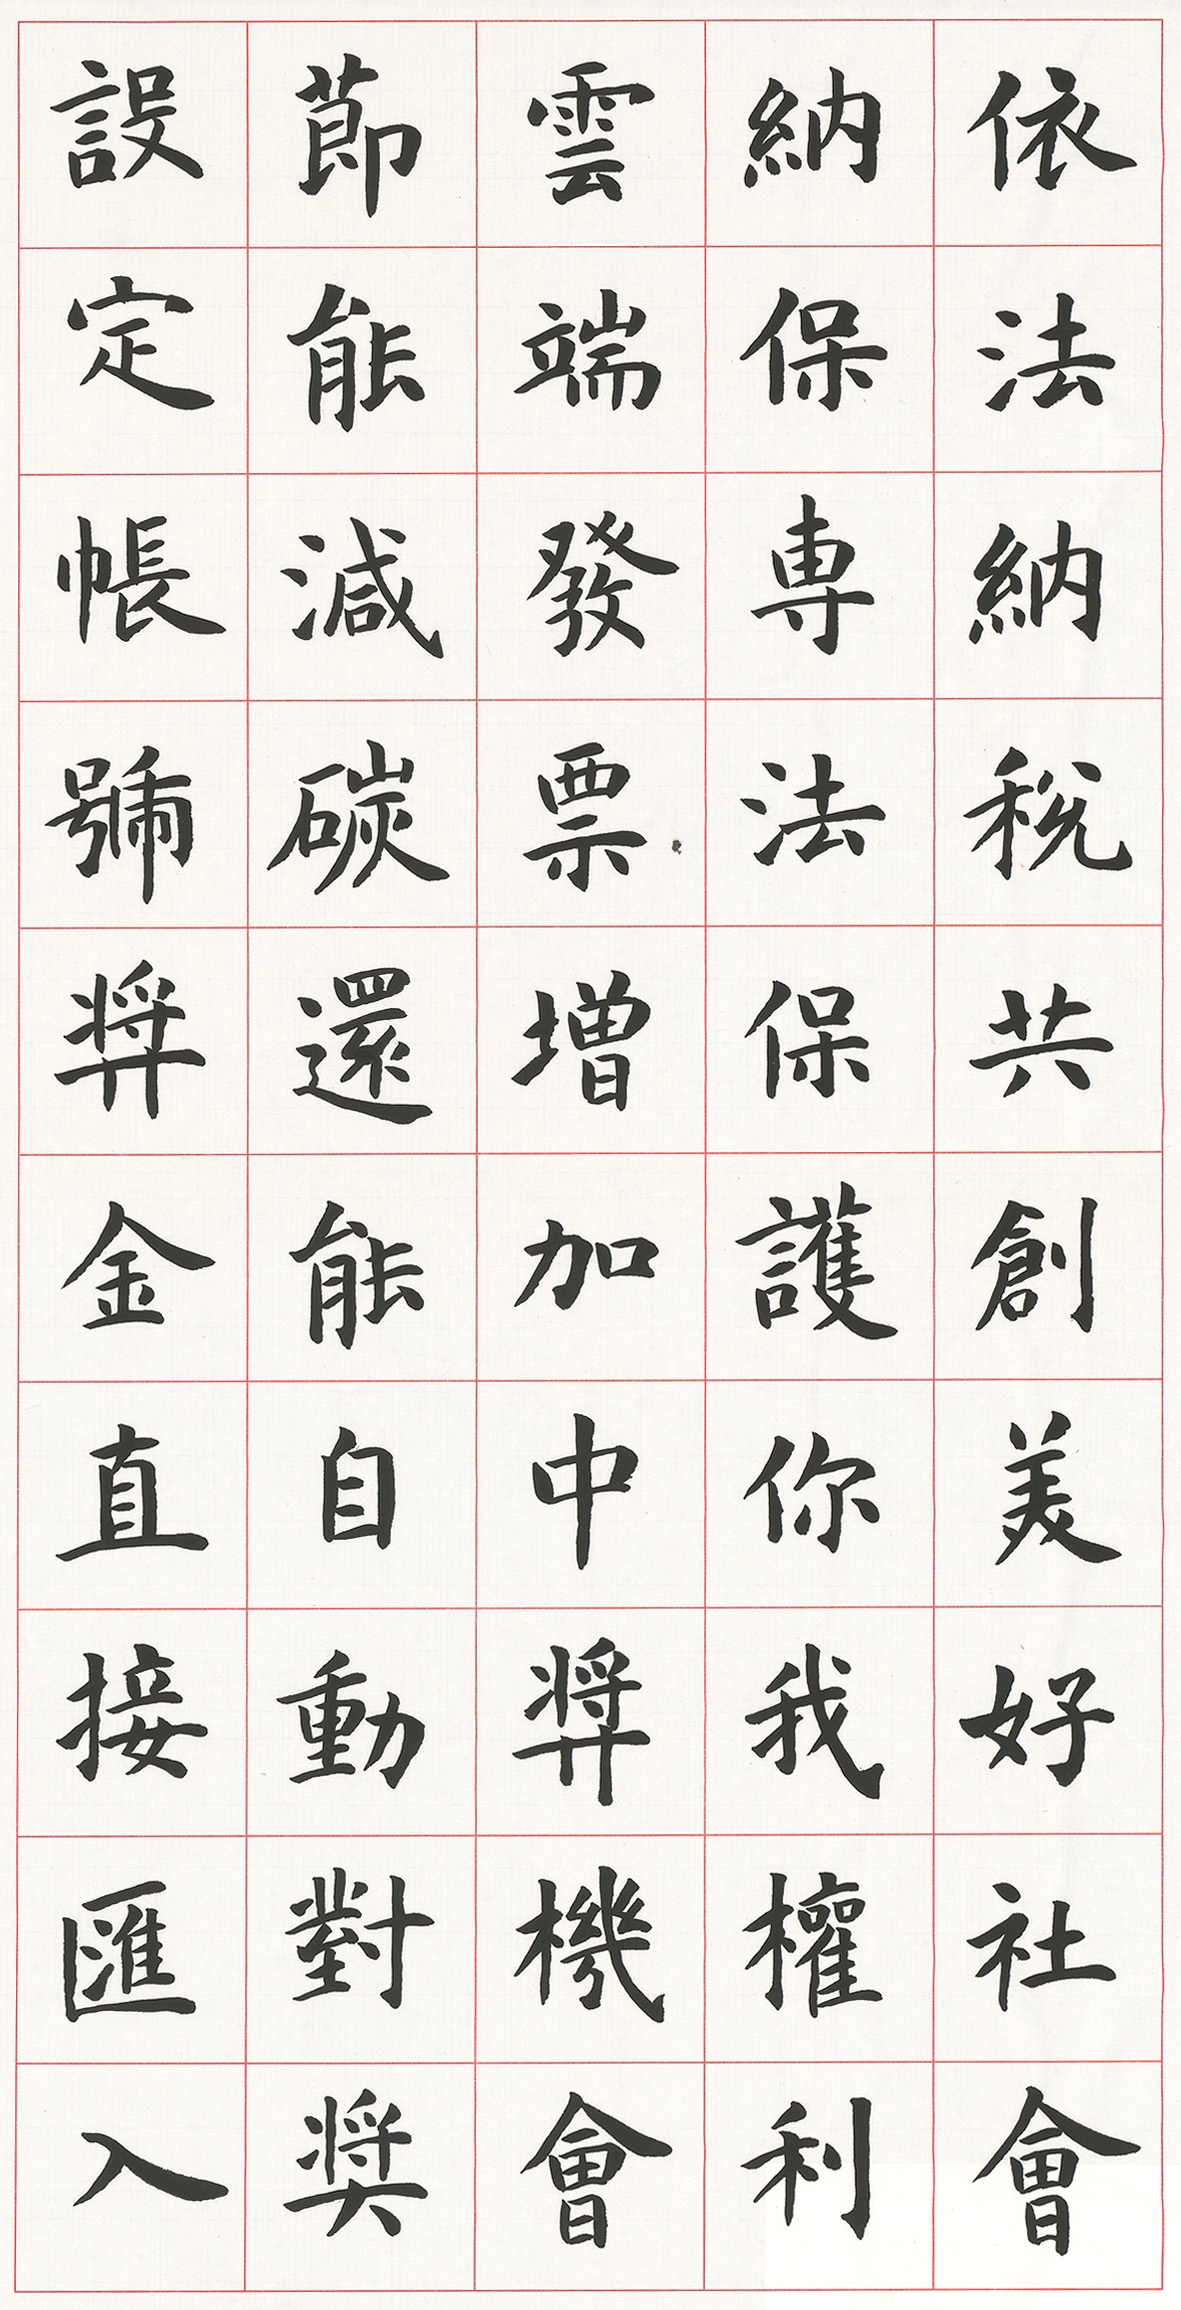 依法納稅共創美好社會
納保專法保護你我權利
雲端發票增加中獎機會
節能減碳還能自動對獎
設定帳號獎金直接匯入